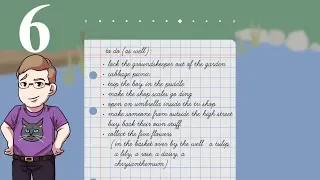 6
to do (as well):
• lock the groundskeeper out of the garden
• cabbage picnic
• trip the boy in the puddle
• make the shop scales go ding
• open an umbrella inside the tv shop
• make someone from outside the high street
buy back their own stuff
• collect the five flowers
(in the basket over by the well - a tulip,
a lily, a rose, a daisy, a
chrysanthemum)